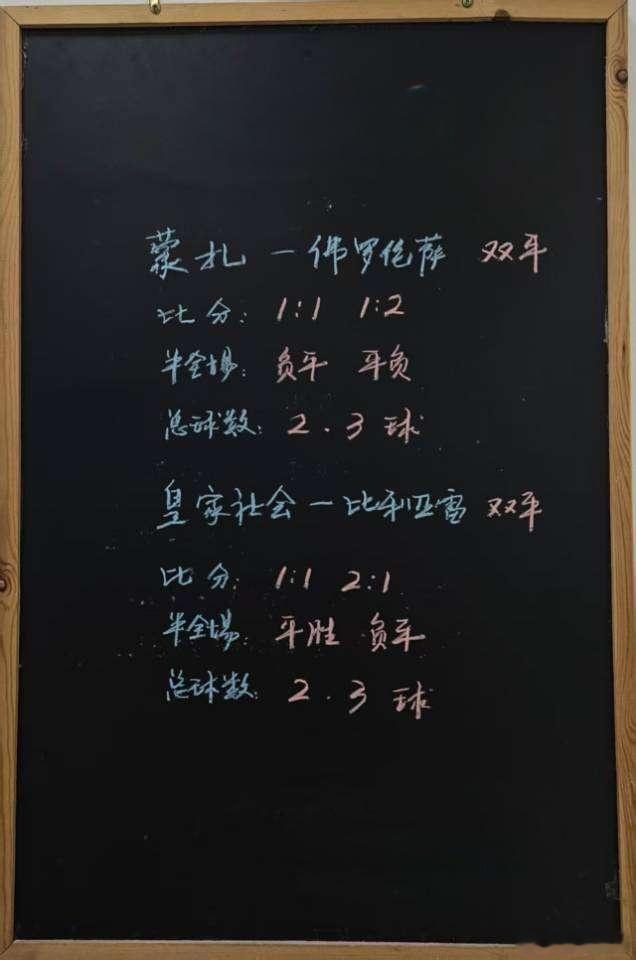 蒙扎 - 佛罗伦萨 双平
比分: 1:1 1:2
半全场: 负平 平负
总球数: 2.3球
皇家社会 - 比利亚雷 双平
比分: 1:1 2:1
半全场: 平胜 负平
总球数: 2.3球